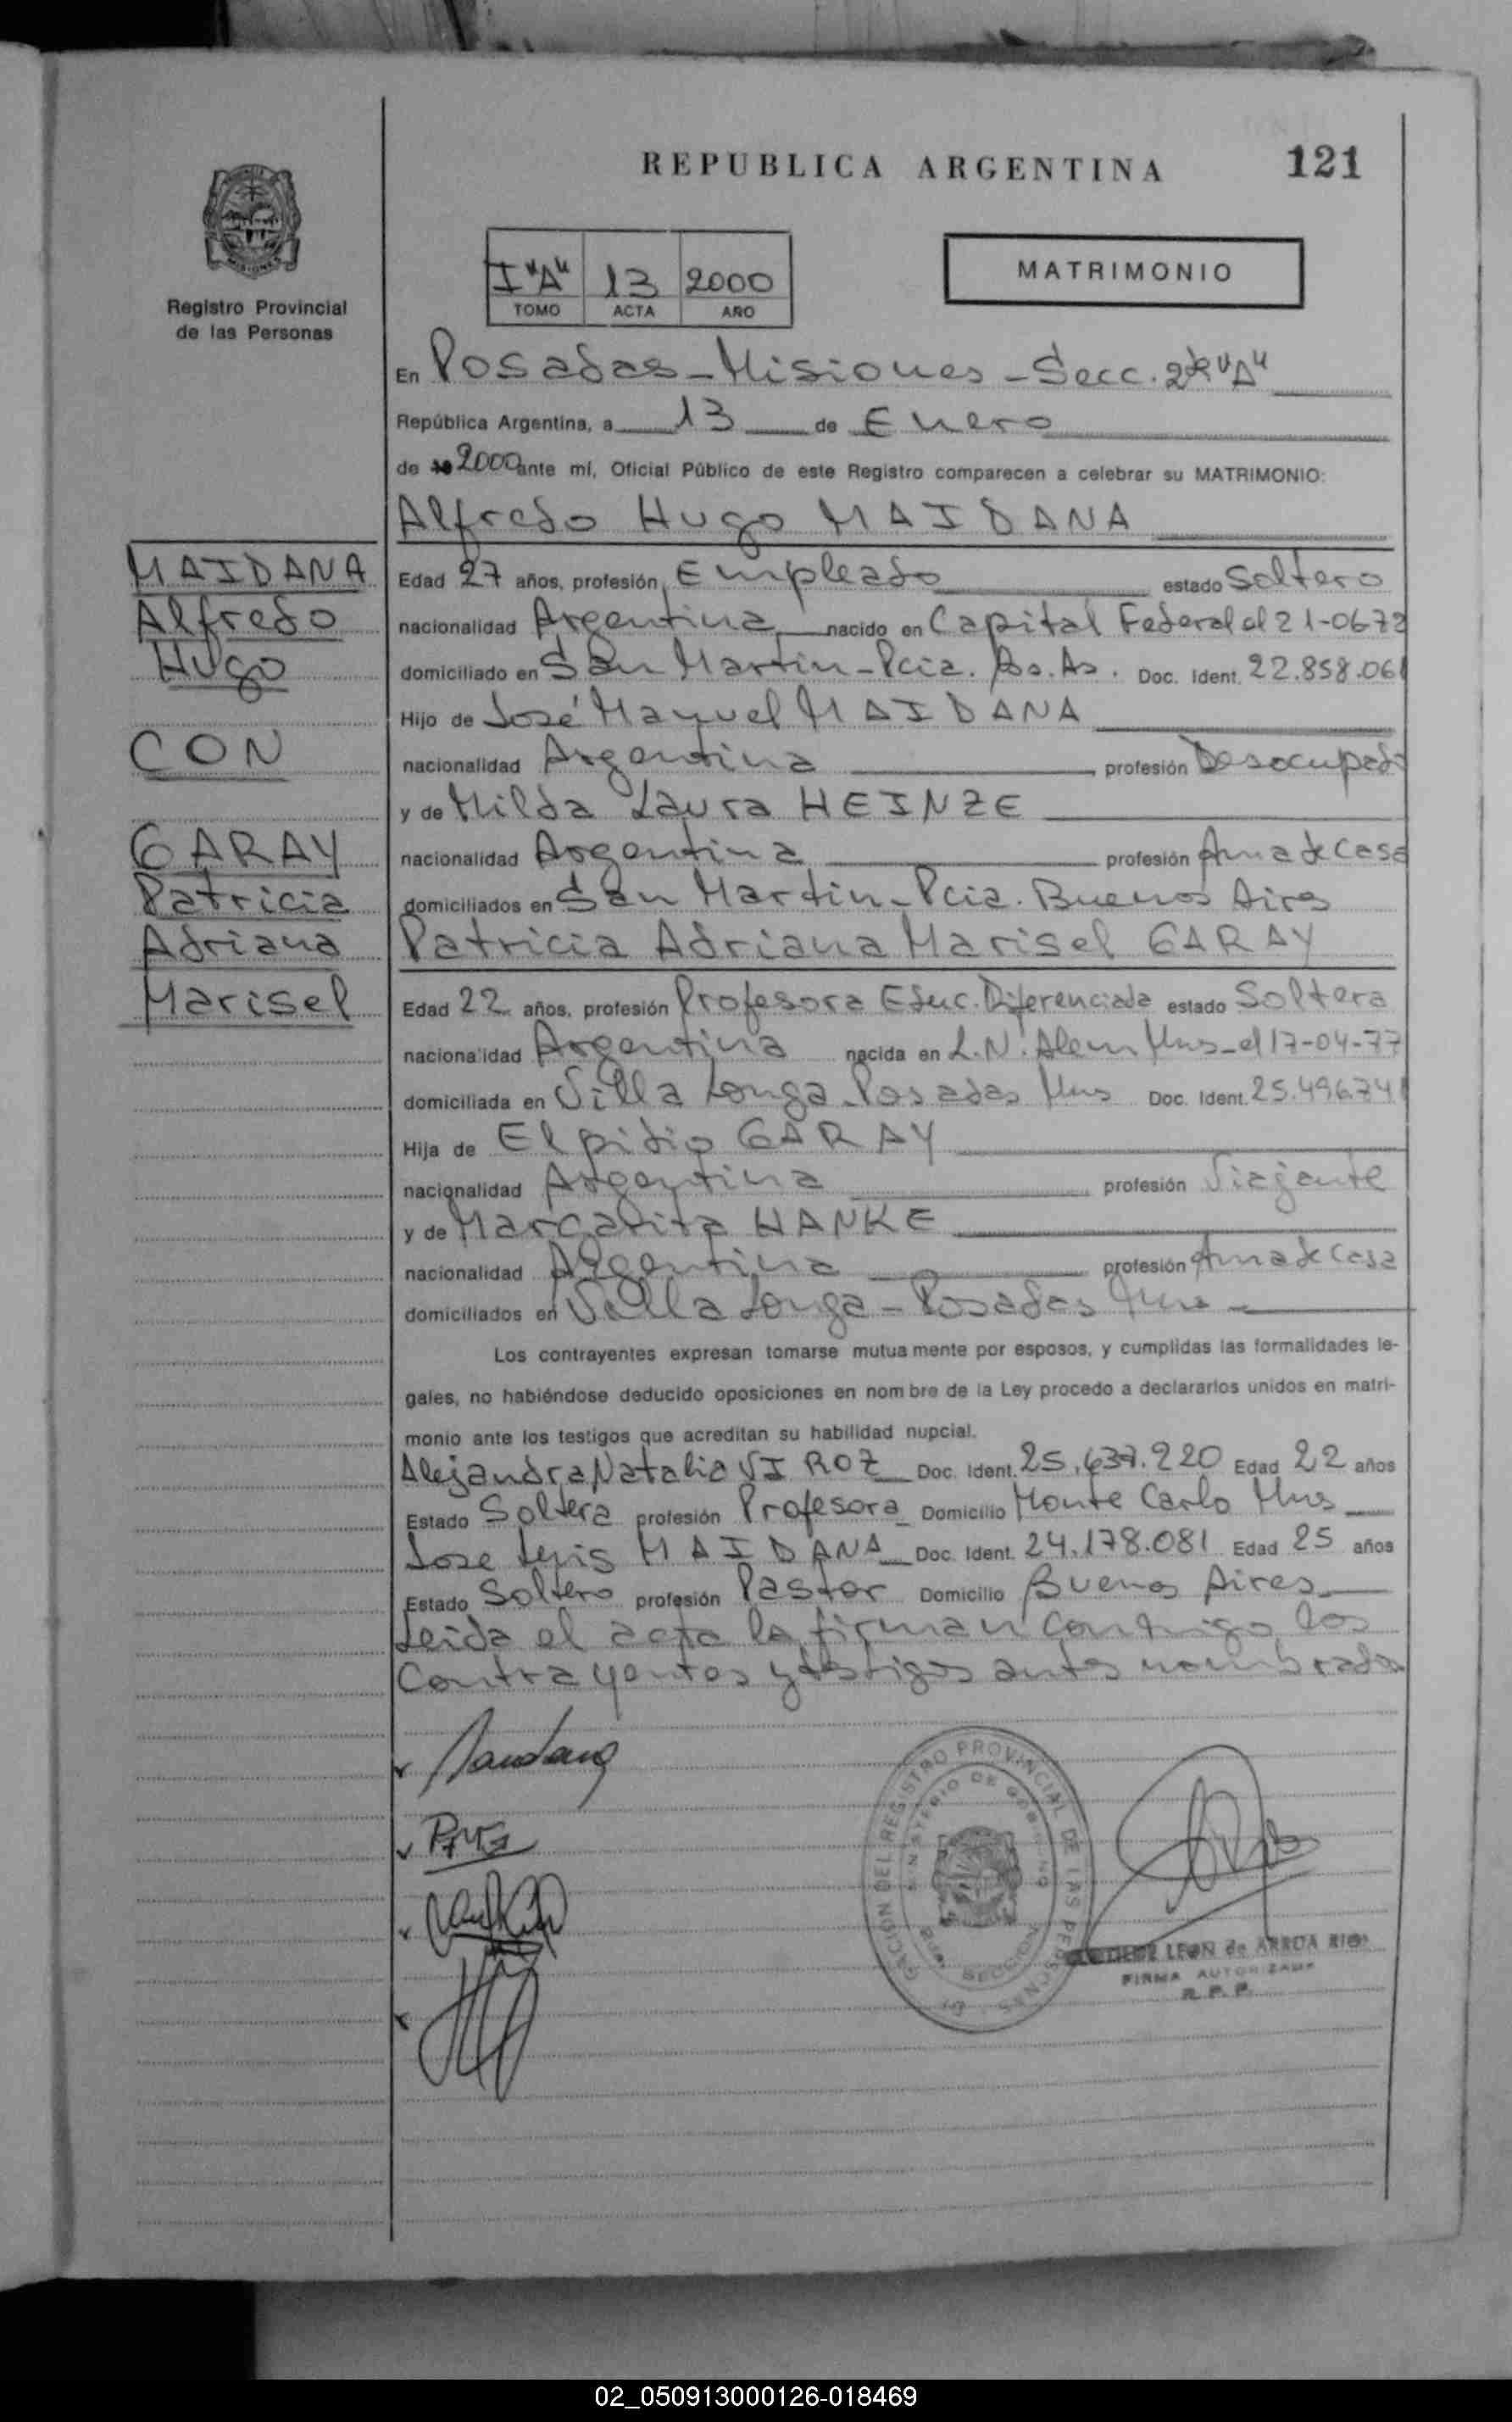 REPUBLICA ARGENTINA
121
Registro Provincial
de las Personas
I "A" 13 2000
TOMO ACTA AÑO
MATRIMONIO
En Posadas - Misiones - Secc. 2ª "A"
República Argentina, a 13 de Enero
de 2000 ante mí, Oficial Público de este Registro comparecen a celebrar su MATRIMONIO:
Alfredo Hugo MAIDANA
MAIDANA
Alfredo
Hugo
CON
GARAY
Patricia
Adriana
Marisel
Edad 27 años, profesión Empleado estado Soltero
nacionalidad Argentina nacido en Capital Federal el 21-06-72
domiciliado en San Martin - Pcia. Bs. As. Doc. Ident. 22.858.061
Hijo de José Manuel MAIDANA
nacionalidad Argentina profesión Desocupado
y de Milda Laura HEINZE
nacionalidad Argentina profesión Ama de Casa
domiciliados en San Martin - Pcia. Buenos Aires
Patricia Adriana Marisel GARAY
Edad 22 años, profesión Profesora Educ. Diferenciada estado Soltera
nacionalidad Argentina nacida en L.N. Alem Mns - el 17-04-77
domiciliada en Villa Longa - Posadas Mns Doc. Ident. 25.496.741
Hija de Elpidio GARAY
nacionalidad Argentina profesión Viajante
y de Margarita HANKE
nacionalidad Argentina profesión Ama de Casa
domiciliados en Villa Longa - Posadas Mns -
Los contrayentes expresan tomarse mutuamente por esposos, y cumplidas las formalidades le-
gales, no habiéndose deducido oposiciones en nombre de la Ley procedo a declararlos unidos en matri-
monio ante los testigos que acreditan su habilidad nupcial.
Alejandra Natalia VIROZ Doc. Ident. 25.637.220 Edad 22 años
Estado Soltera profesión Profesora Domicilio Monte Carlo Mns
Jose Luis MAIDANA Doc. Ident. 24.178.081 Edad 25 años
Estado Soltero profesión Pastor Domicilio Buenos Aires
Leida el acta la firman conmigo los
Contrayentes y testigos antes nombrados
REGISTRO PROVINCIAL DE LAS PERSONAS
MINISTERIO DE GOBIERNO
SECCION
LEON de ARRUA
FIRMA AUTORIZADA
R. P. P.
02_050913000126-018469